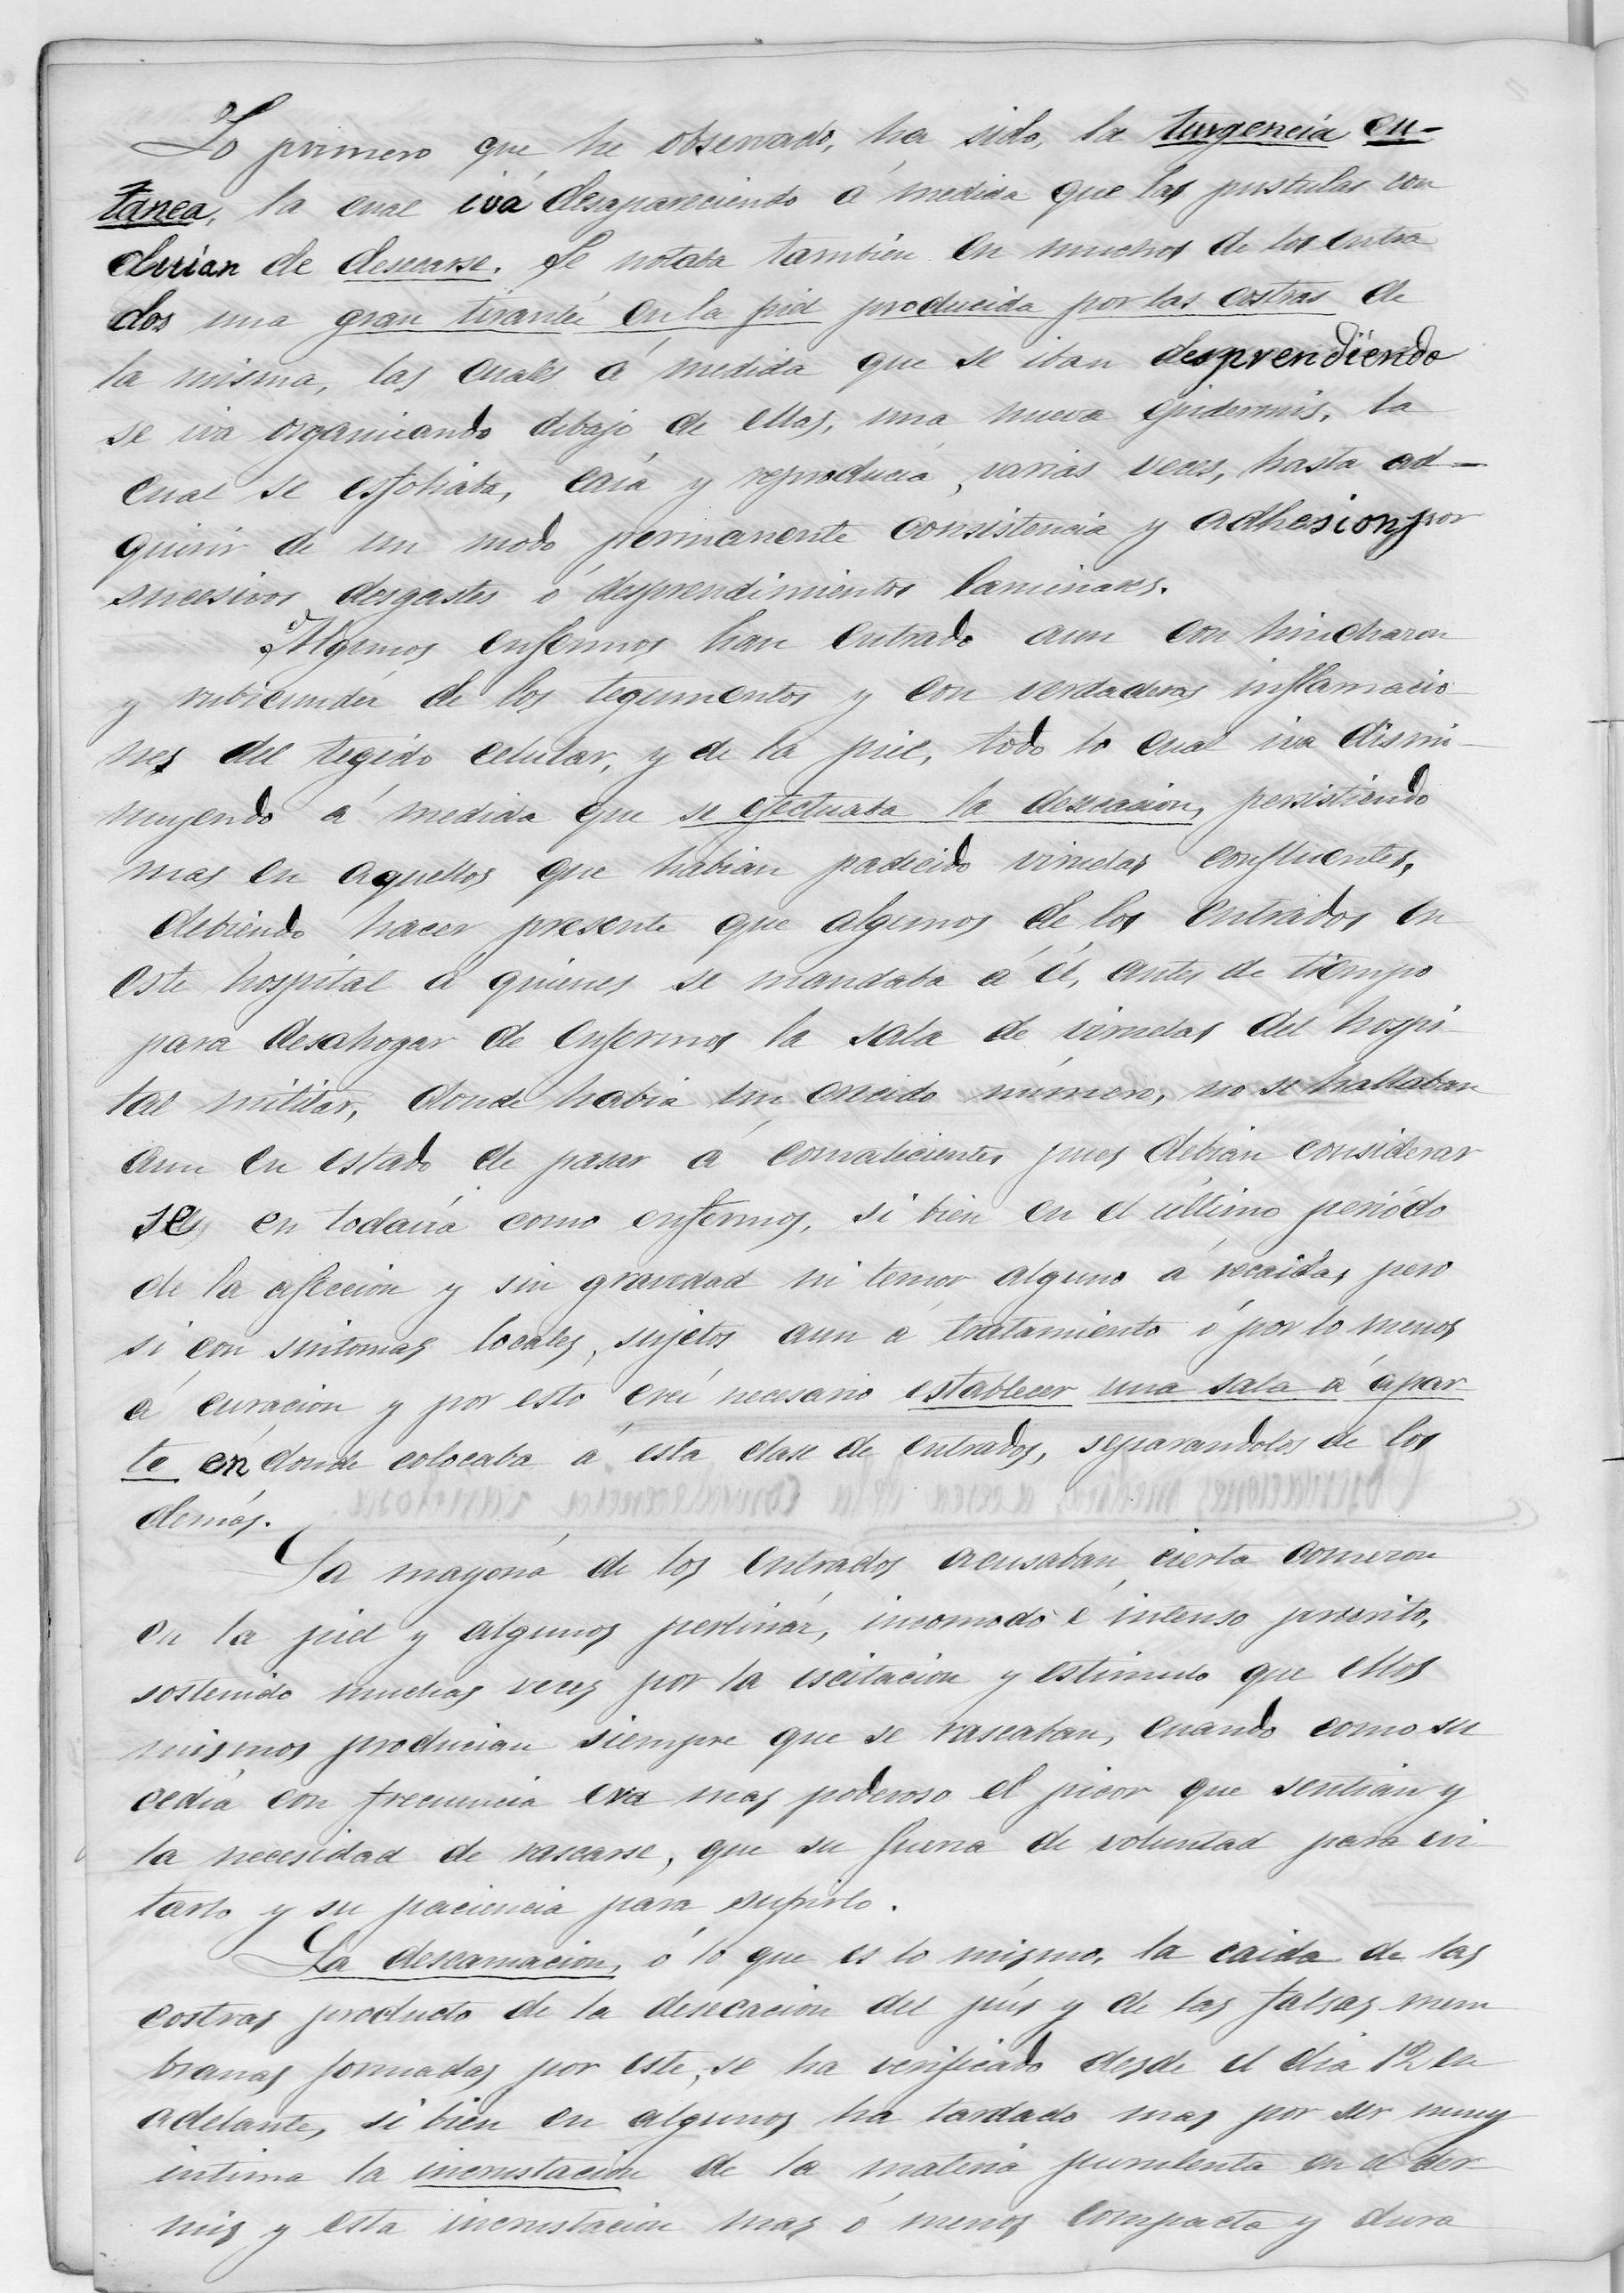 Lo primero que he observado, ha sido, la turgencia cu-
tanea, la cual ivá desapareciendo á medida que las pustulas con
cluian de desecarse. Se notaba tambien en muchos de los entra
dos una gran tirantéz en la piel producida por las costras de
la misma, las cuales á medida que se iban desprendiendo
se iva organizando debajo de ellas, una nueva epidermis, la
cual se esfoliaba, caia y reproducia, varias veces, hasta ad-
quirir de un modo permanente consistencia y adhesion por
sucesivos desgastes ó desprendimientos laminares.
Algunos enfermos han entrado aun con hinchazon
y rubicundéz de los tegumentos y con verdaderas inflamacio-
nes del tegido celular, y de la piel, todo lo cual iva dismi-
nuyendo á medida que se efectuaba la desecacion, persistiendo
mas en aquellos que habian padecido viruelas confluentes,
debiendo hacer presente que algunos de los entrados en
este hospital á quienes se mandaba á él, antes de tiempo
para desahogar de enfermos la sala de viruelas del hospi-
tal militar, donde habia un crecido número, no se hallaban
aun en estado de pasar á convalecientes pues debian considerar
seles en todavia como enfermos, si bien en el último periódo
de la afeccion y sin gravedad ni temor alguno á recaidas pero
si con sintomas locales, sujetos aun á tratamiento ó por lo menos
á curacion y por esto creí necesario establecer una sala á apar-
te en donde colocaba á esta clase de entrados, separandolos de los
demás.
La mayoria de los entrados acusaban cierta comezon
en la piel y algunos pertináz, incomodo é intenso prurito,
sostenido muchas veces por la escitacion y estimulo que ellos
mismos producian siempre que se rascaban, cuando como su
cedia con frecuencia era mas poderoso el picor que sentian y
la necesidad de rascarse, que su fuerza de voluntad para evi-
tarlo y su paciencia para sufrirlo.
La descamacion, ó lo que es lo mismo, la caida de las
costras producto de la desecacion del pús y de las falsas mem
branas formadas por este, se ha verificado desde el dia 12 en
adelante, si bien en algunos ha tardado mas por ser muy
intima la incrustacion de la materia purulenta en el der-
mis y esta incrustacion mas ó menos compacta y dura